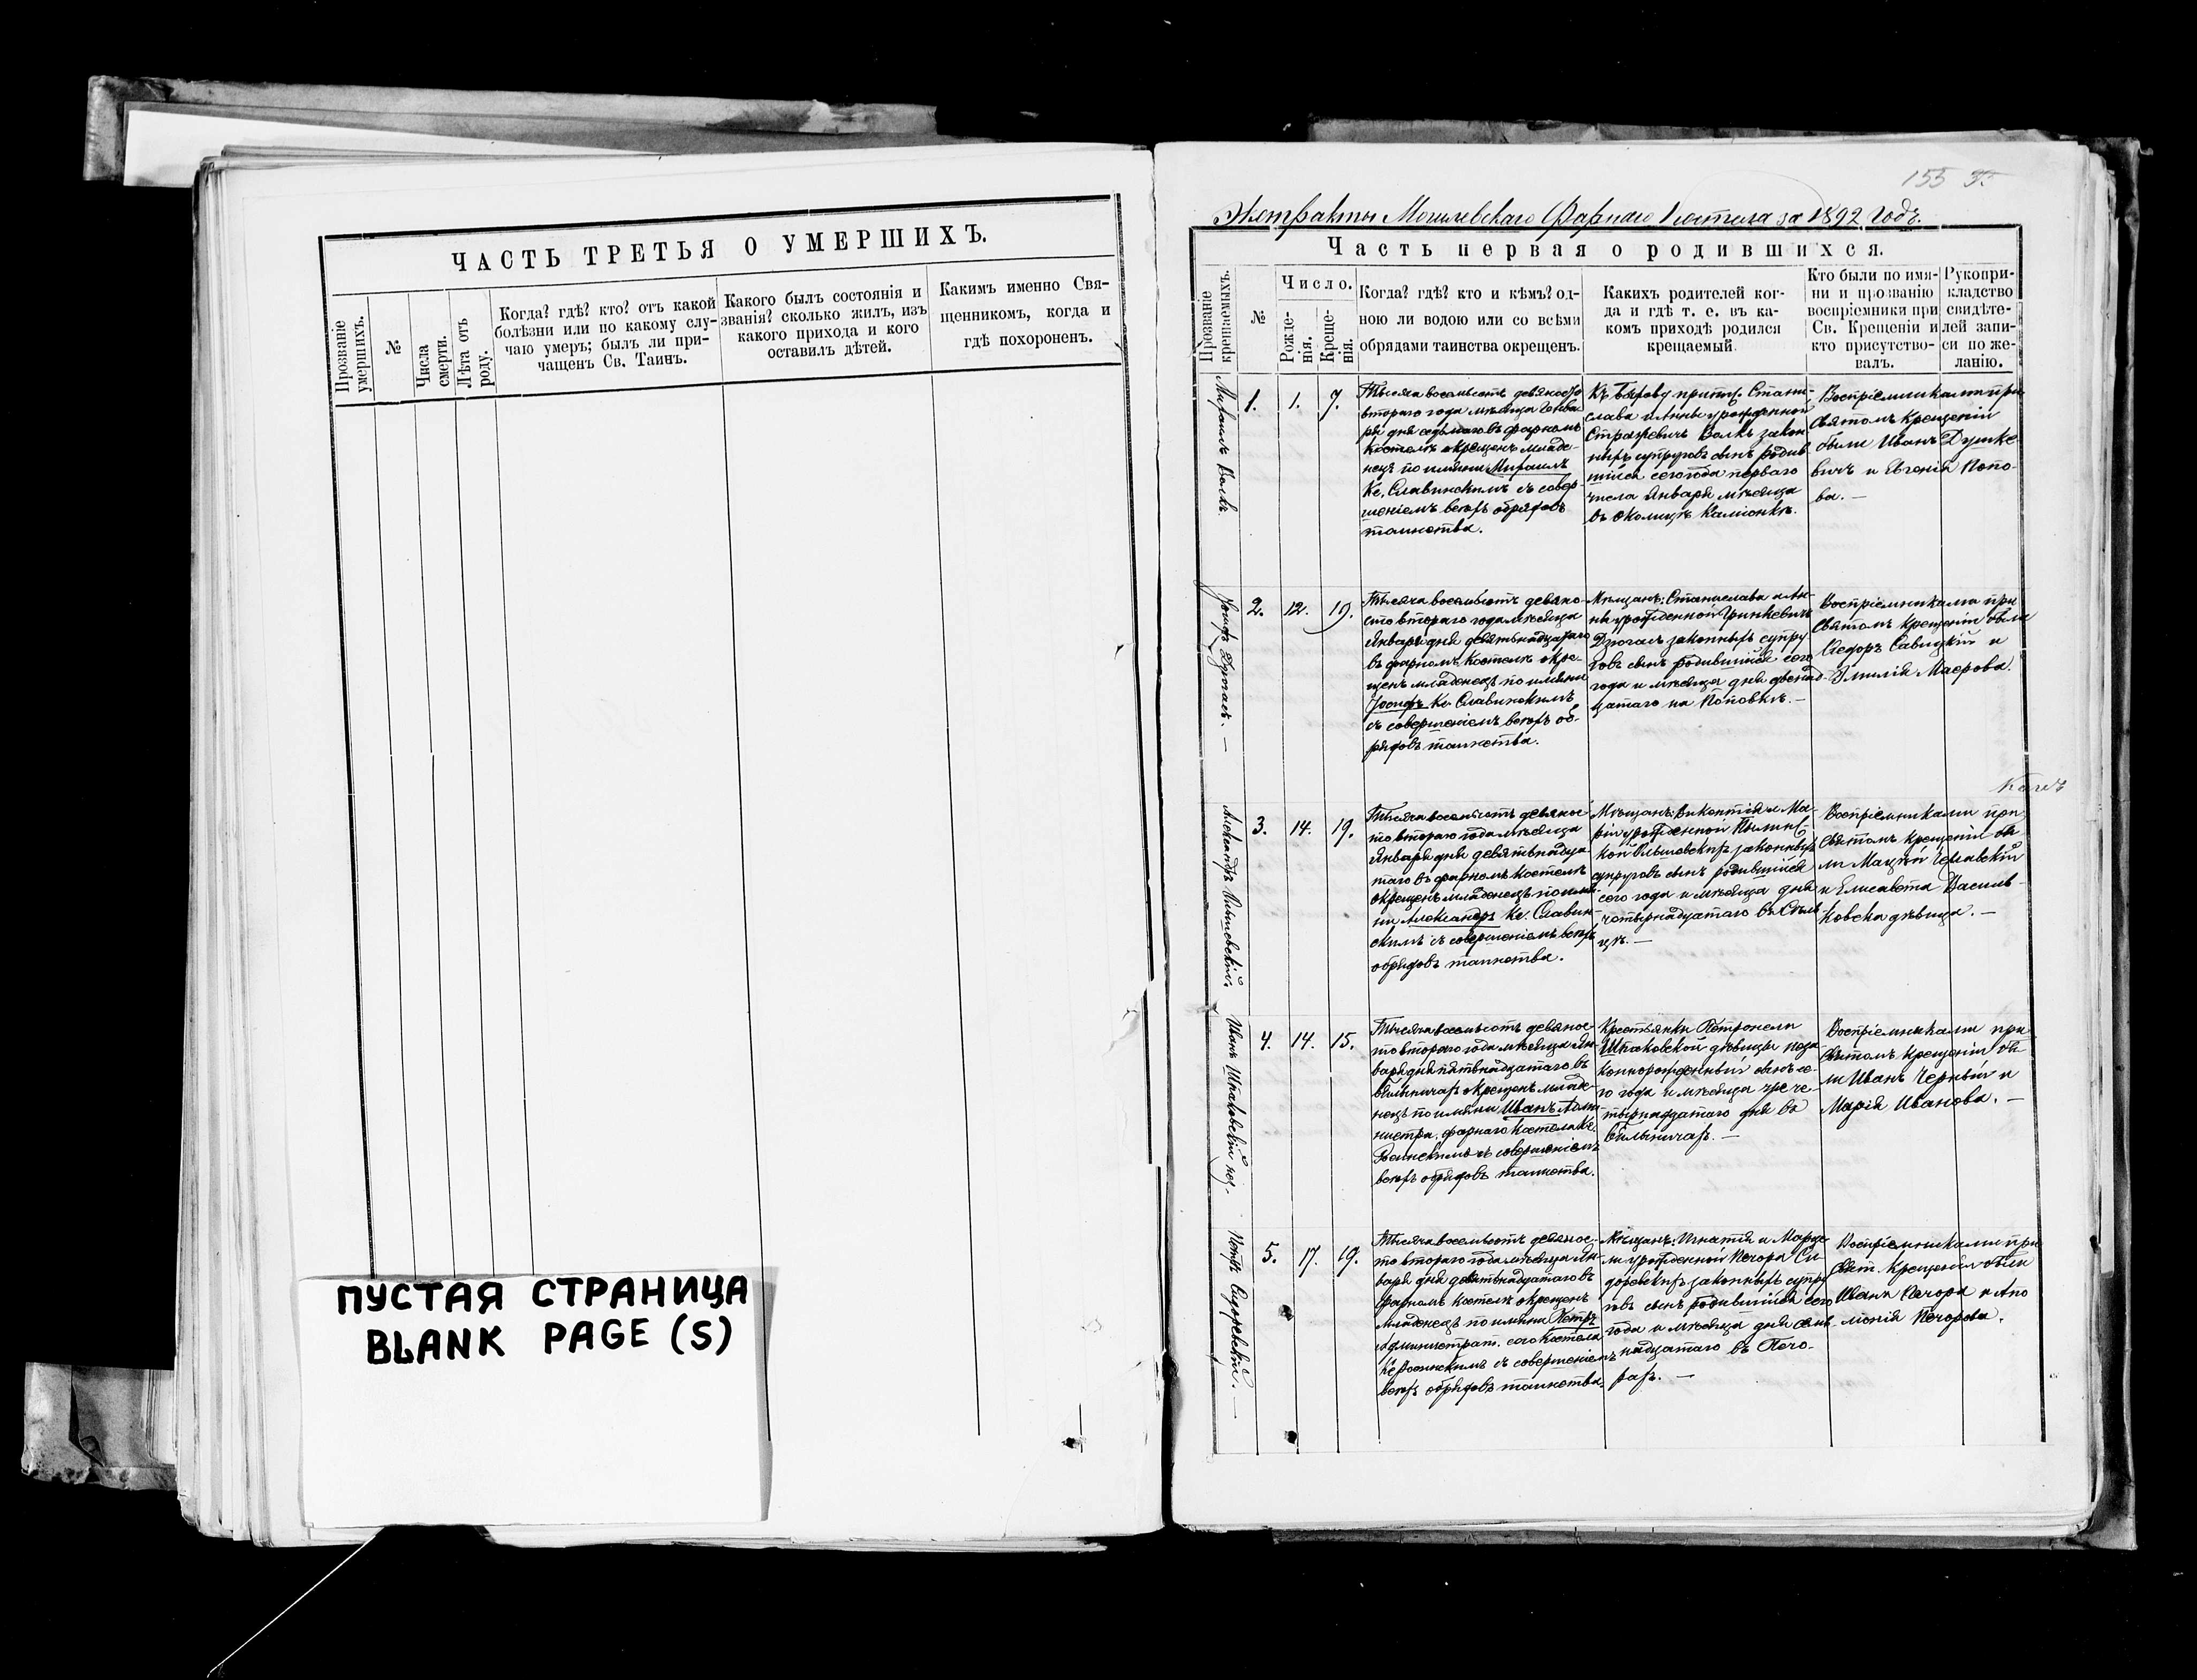 ЧАСТЬ ТРЕТЬЯ О УМЕРШИХЪ.
Прозваніе умершихъ.
№
Числа смерти.
Лѣта отъ роду.
Когда? гдѣ? кто? отъ какой
болѣзни или по какому слу-
чаю умеръ; былъ ли при-
чащенъ Св. Таинъ.
Какого былъ состоянія и
званія? сколько жилъ, изъ
какого прихода и кого
оставилъ дѣтей.
Какимъ именно Свя-
щенникомъ, когда и
гдѣ похороненъ.
ПУСТАЯ СТРАНИЦА
BLANK PAGE (S)
155
Могилевскаго Фарнаго Костела за 1892 годъ.
Часть первая о родившихся.
Прозваніе крещаемыхъ.
№
Число.
Рожде-
нія.
Креще-
нія.
Когда? гдѣ? кто и кѣмъ? од-
ною ли водою или со всѣми
обрядами таинства окрещенъ.
Какихъ родителей ког-
да и гдѣ т. е. въ ка-
комъ приходѣ родился
крещаемый.
Кто были по имя-
ни и прозванію
воспріемники при
Св. Крещеніи и
кто присутство-
валъ.
Рукопри-
кладство
свидѣте-
лей запи-
си по же-
ланію.
1.
1.
7.
Тысяча восемьсотъ девяносто
втораго года мѣсяца Янва
ря дня седьмаго въ фарномъ
Костелѣ окрещенъ младе-
нецъ по имяни
Кс. Славинскимъ съ совер
шеніемъ всехъ обрядовъ
таинства.
Стани
слава и Анны урожденной
Волкъ закон
ныхъ супруговъ сынъ родив
шійся сего года перваго
числа Января мѣсяца
въ околицѣ Каміонкѣ.
Воспріемниками при
Святомъ Крещеніи
были Иванъ Душке
вичъ и Евгенія Попо-
ва. —
Іосифъ
2.
12.
19.
Тысяча восемьсотъ девяно-
сто втораго года мѣсяца
Января дня девятьнадцатаго
въ фарномъ Костелѣ окре-
щенъ младенецъ по имяни
Іосифъ Кс. Славинскимъ
съ совершеніемъ всехъ об-
рядовъ таинства.
Мѣщанъ: Станислава и Ан-
ны урожденной Гринкевичъ
законныхъ супру
говъ сынъ родившійся сего
года и мѣсяца дня двенад-
цатаго на Поповкѣ. —
Воспріемниками при
Святомъ Крещеніи были
Ѳедоръ Савицкій и
Эмилія Маерова.
Александръ
3.
14.
19.
Тысяча восемьсотъ девянос-
то втораго года мѣсяца
Января дня девятьнадца-
таго въ фарномъ Костелѣ
окрещенъ младенецъ по имя-
ни Александръ Кс. Славин-
скимъ съ совершеніемъ всехъ
обрядовъ таинства.
Мѣщанъ: Викентія и Ма-
ріи урожденной
законныхъ
супруговъ сынъ родившійся
сего года и мѣсяца дня
четырнадцатаго въ
Воспріемниками при
Святомъ Крещеніи бы-
ли
и Елисавета Василь-
ковска дѣвица. —
Иванъ Шпаковскій
4.
14.
15.
Тысяча восемьсотъ девянос-
то втораго года мѣсяца Ян-
варя дня пятьнадцатаго въ
Бѣлыничахъ окрещенъ младе-
нецъ по имяни Иванъ Адми-
нистра. фарнаго Костела Кс.
съ совершеніемъ
всехъ обрядовъ таинства.
Крестьянки Петронели
Шпаковской дѣвицы неза
коннорожденный сынъ се-
го года и мѣсяца
тырнадцатаго дня въ
Бѣлыничахъ. —
Воспріемниками при
Святомъ Крещеніи бы-
ли Иванъ Черный и
Марія Иванова. —
Петръ Сидоревскій. —
5.
17.
19.
Тысяча восемьсотъ девянос-
то втораго года мѣсяца Ян-
варя дня девятьнадцатаго въ
фарномъ костелѣ окрещенъ
младенецъ по имяни Петръ
Администрат. сего Костела
съ совершеніемъ
всехъ обрядовъ таинства.
Мѣщанъ: Игнатія и
урожденной Печора Си-
доревскихъ законныхъ супру
говъ сынъ родившійся сего
года и мѣсяца дня семь-
надцатаго въ Печо-
рахъ. —
Воспріемниками при
Свят. Крещеніи были
Иванъ Печора и Апо
лонія Печорова.